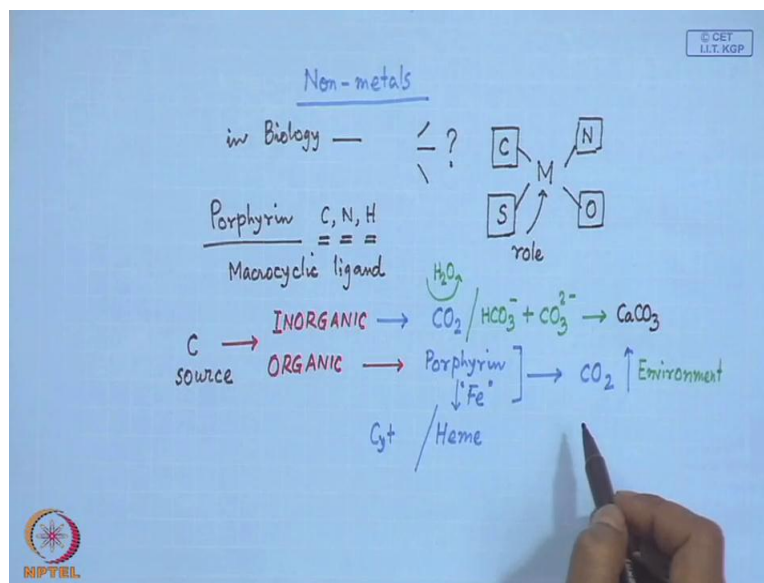 © CET
I.I.T. KGP
Non-metals
in Biology — ?
C N
M
S O
role
Porphyrin C, N, H
Macrocyclic ligand
H₂O
C source → INORGANIC → CO₂ / HCO₃⁻ + CO₃²⁻ → CaCO₃
ORGANIC → Porphyrin → CO₂ ↑ Environment
↓ "Fe"
Cyt / Heme
NPTEL